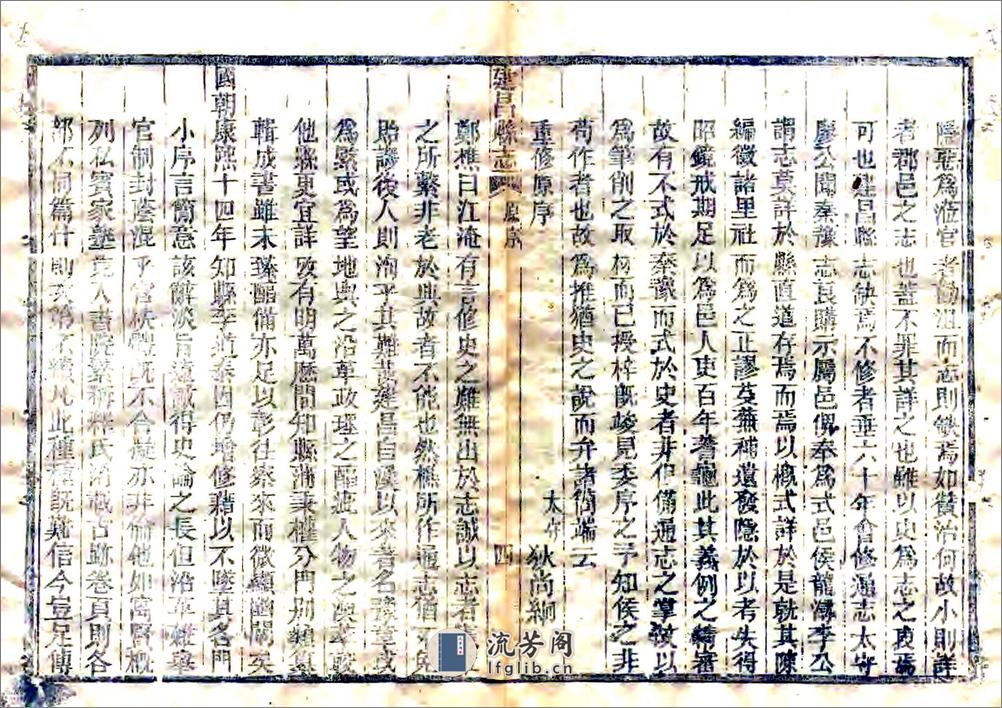 者郡邑之志也蓋不罪其詳之也雖以史為志之
可也建昌縣志缺焉不修者垂六十年會修通志太守
廖公聞秦豫志良購示屬邑俾奉為式邑侯龍溪李公
謂志莫詳於縣直道存焉而焉以概式詳於是就其陳
編徵諸里社而為之正謬芟蕪補遺發隱於以考失得
昭鏡戒期足以為邑人吏百年蓍龜此其義例之
故有不式於秦豫而式於史者非但備通志之掌故以
為筆削之取材而已授梓既竣見委序之予知侯之非
苟作者也故為推猶史之說而弁諸簡端云
太守 狄尚絅
重修原序
建昌縣志 原序 四
鄭樵曰江淹有言修史之難無出於志誠以志者
之所繫非老於典故者不能也然樵所作通志猶
貽譏後人則洵乎其難哉建昌自漢以來者名
為縣或為望地輿之沿革政理之 人物之
他縣更宜詳攷有明萬曆間知縣蒲秉權分門別類
輯成書雖未臻酷備亦足以彰往察來而微顯闡
國朝康熙十四年知縣李道泰因仍增修藉以不墜其各門
小序言簡意該辭淡旨遠誠得史論之長但沿革
官制封蔭混乎官 體既不合 亦非倫他如寓賢
列私賓家 書院繫 釋氏 古跡卷頁則各
此種種既難信今豈足傳
流芳阁
lfglib.cn